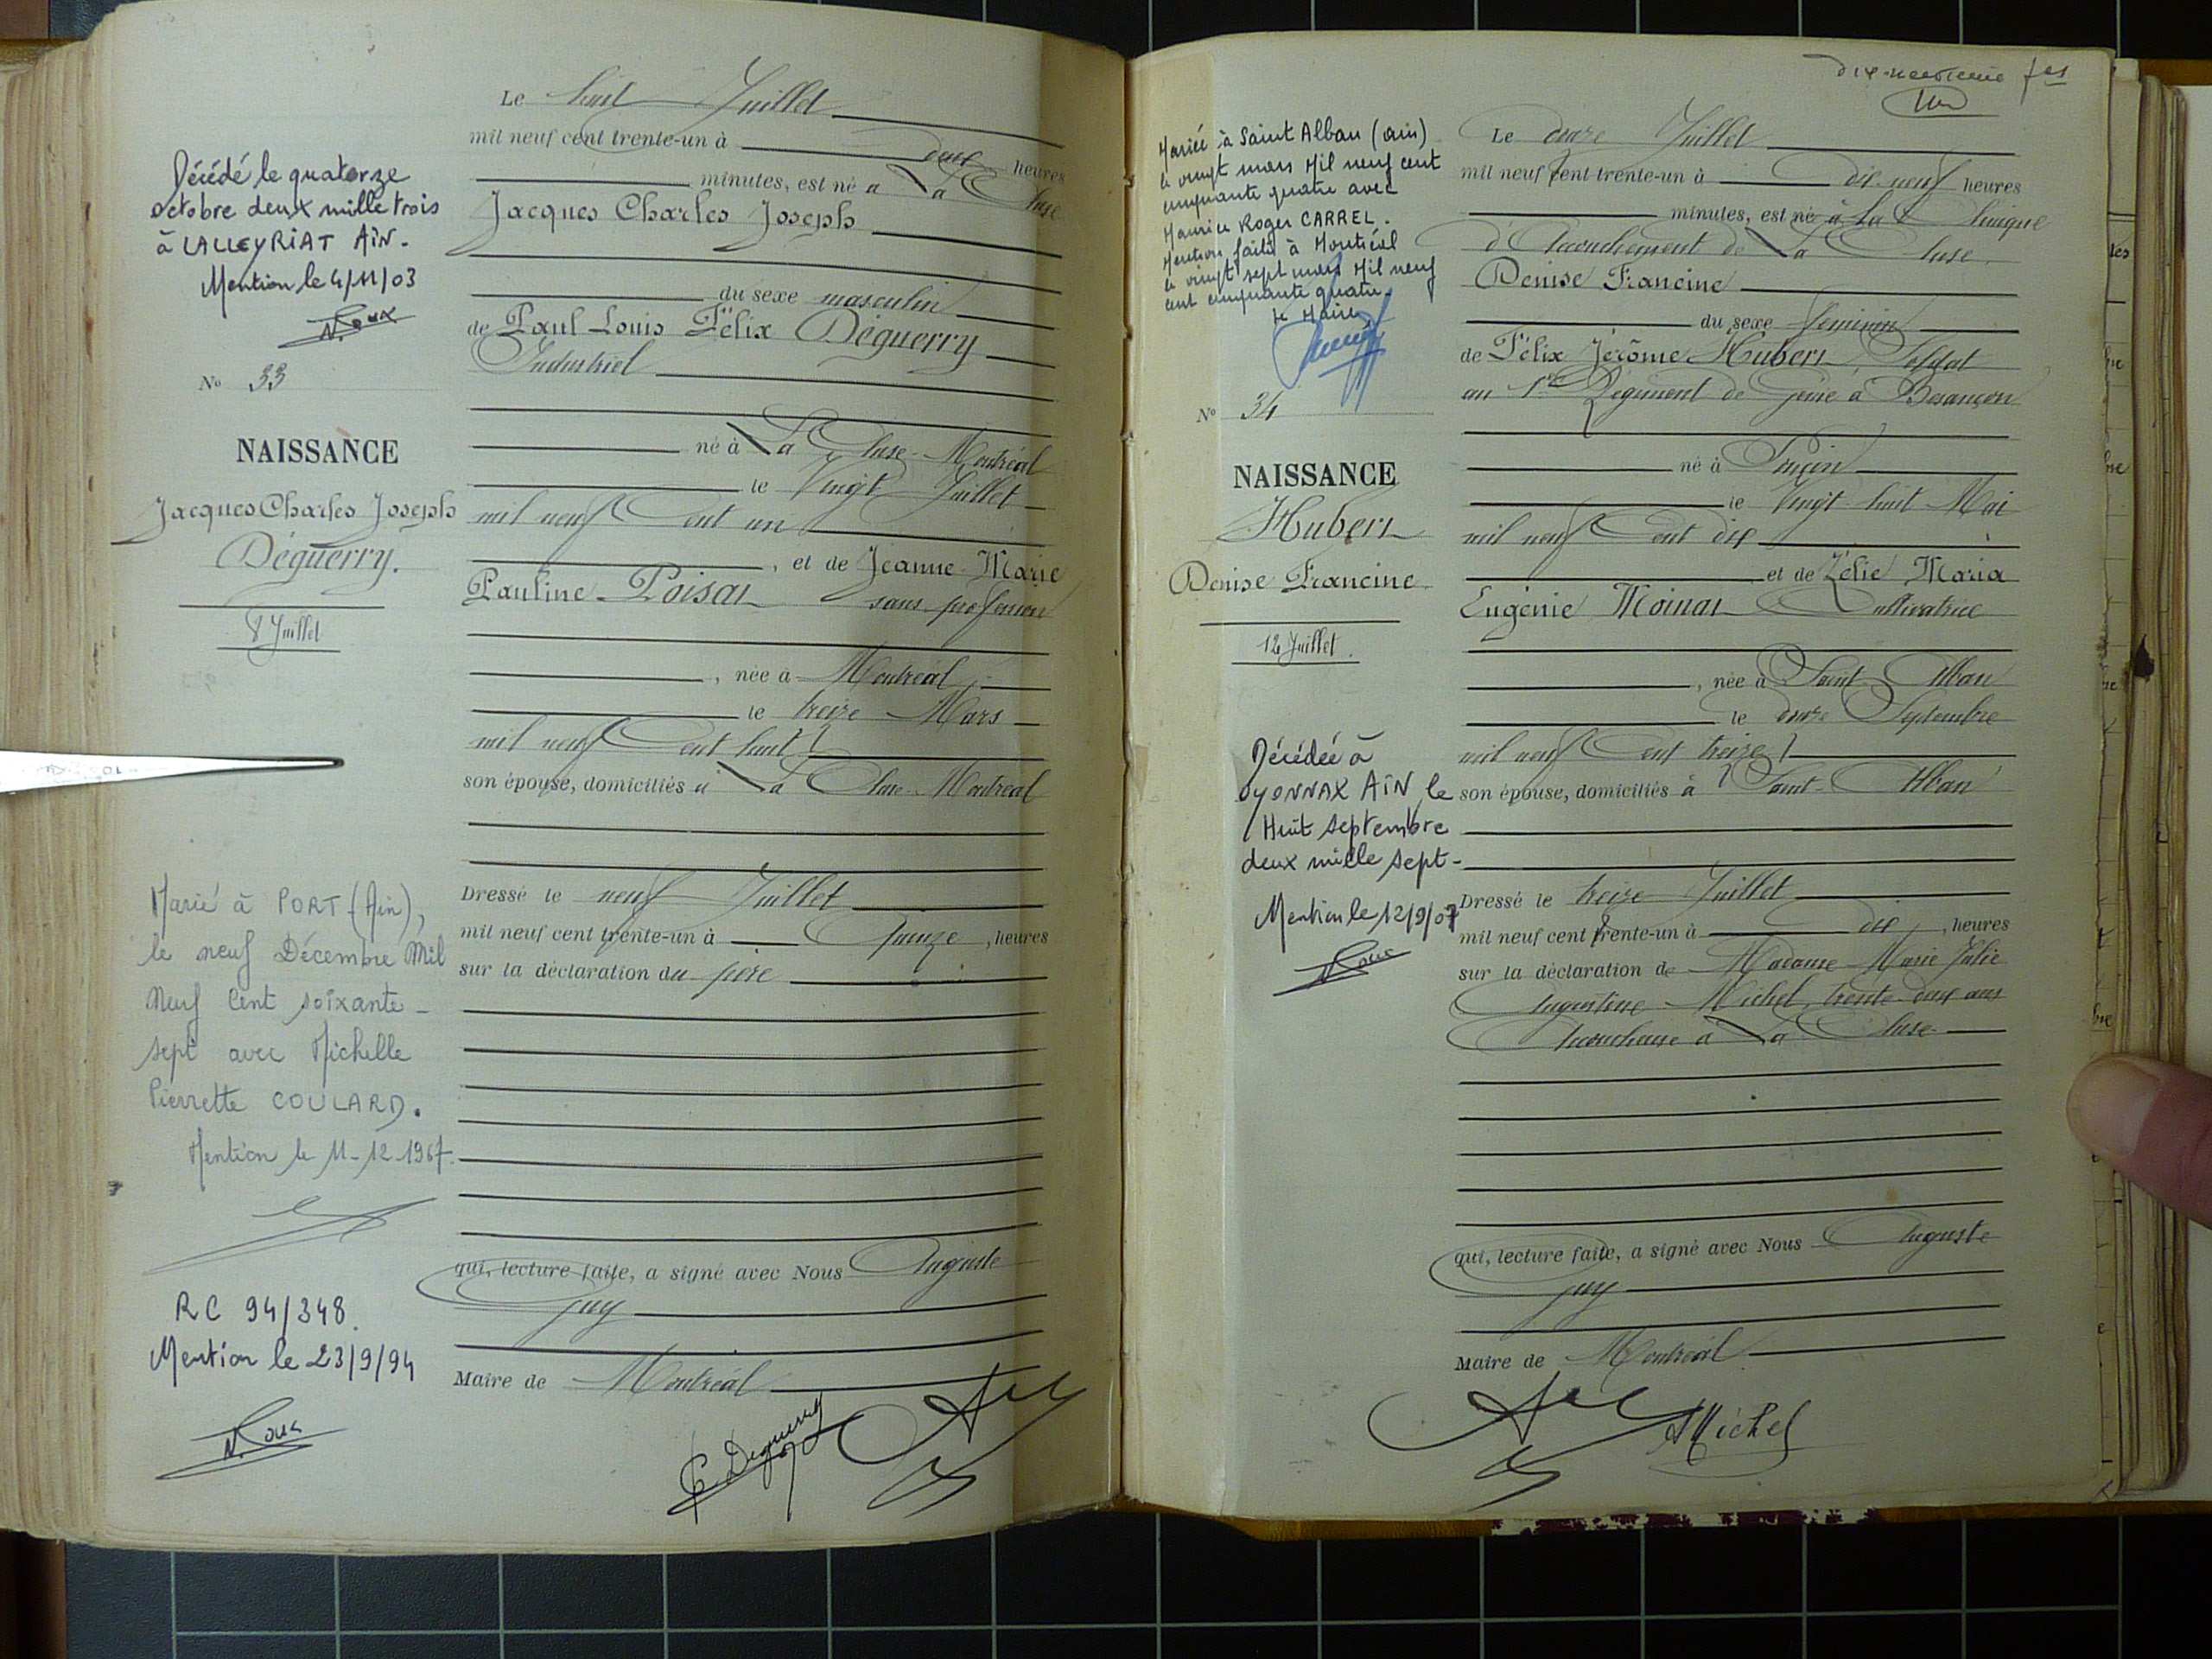 Le huit Juillet
mil neuf cent trente-un à deux heures
minutes, est né à La Cluse
Jacques Charles Joseph
du sexe masculin
de Paul Louis Félix Déguerry
Industriel
né à La Cluse-Montréal
le Vingt Juillet
mil neuf Cent un
, et de Jeanne-Marie
Pauline Poisat sans profession
, née à Montréal
le treize Mars
mil neuf Cent huit
son épouse, domiciliés à La Cluse-Montréal
Dressé le neuf Juillet
mil neuf cent trente-un à quinze, heures
sur la déclaration du père
qui, lecture faite, a signé avec Nous Auguste
Juy
Maire de Montréal
P Deguerry
Décédé le quatorze
octobre deux mille trois
à LALLEYRIAT AIN.
Mention le 4/11/03
N. Roux
No 33
NAISSANCE
Jacques Charles Joseph
Déguerry.
8 Juillet
Marié à PORT (Ain),
le neuf Décembre Mil
Neuf Cent soixante-
sept avec Michelle
Pierrette COULARD.
Mention le 11-12-1967.
RC 94/348.
Mention le 23/9/94
N. Roux
dix-neuvième
Le douze Juillet
mil neuf cent trente-un à dix-neuf heures
minutes, est né à la Clinique
d'Accouchement de La Cluse.
Denise Francine
du sexe féminin
de Félix Jérôme Hubert, Soldat
au 1er Régiment de Génie à Besançon
né à Poncin
le Vingt-huit Mai
mil neuf Cent dix
et de Zélie Maria
Eugénie Moinat Cultivatrice
, née à Saint-Alban
le douze Septembre
mil neuf Cent treize
son épouse, domiciliés à Saint-Alban
Dressé le treize Juillet
mil neuf cent trente-un à dix, heures
sur la déclaration de Madame Marie Julie
Augustine Michel, trente-deux ans
Accoucheuse à La Cluse
qui, lecture faite, a signé avec Nous Auguste
Juy
Maire de Montréal
AMichel
Mariée à Saint Alban (Ain)
le vingt mars Mil neuf cent
cinquante quatre avec
Maurice Roger CARREL.
Mention faite à Montréal
le vingt sept mars Mil neuf
cent cinquante quatre.
le Maire,
No 34
NAISSANCE
Hubert
Denise Francine
12 Juillet.
Décédée à
OYONNAX AIN le
Huit septembre
deux mille sept-
Mention le 12/9/07
N Roux